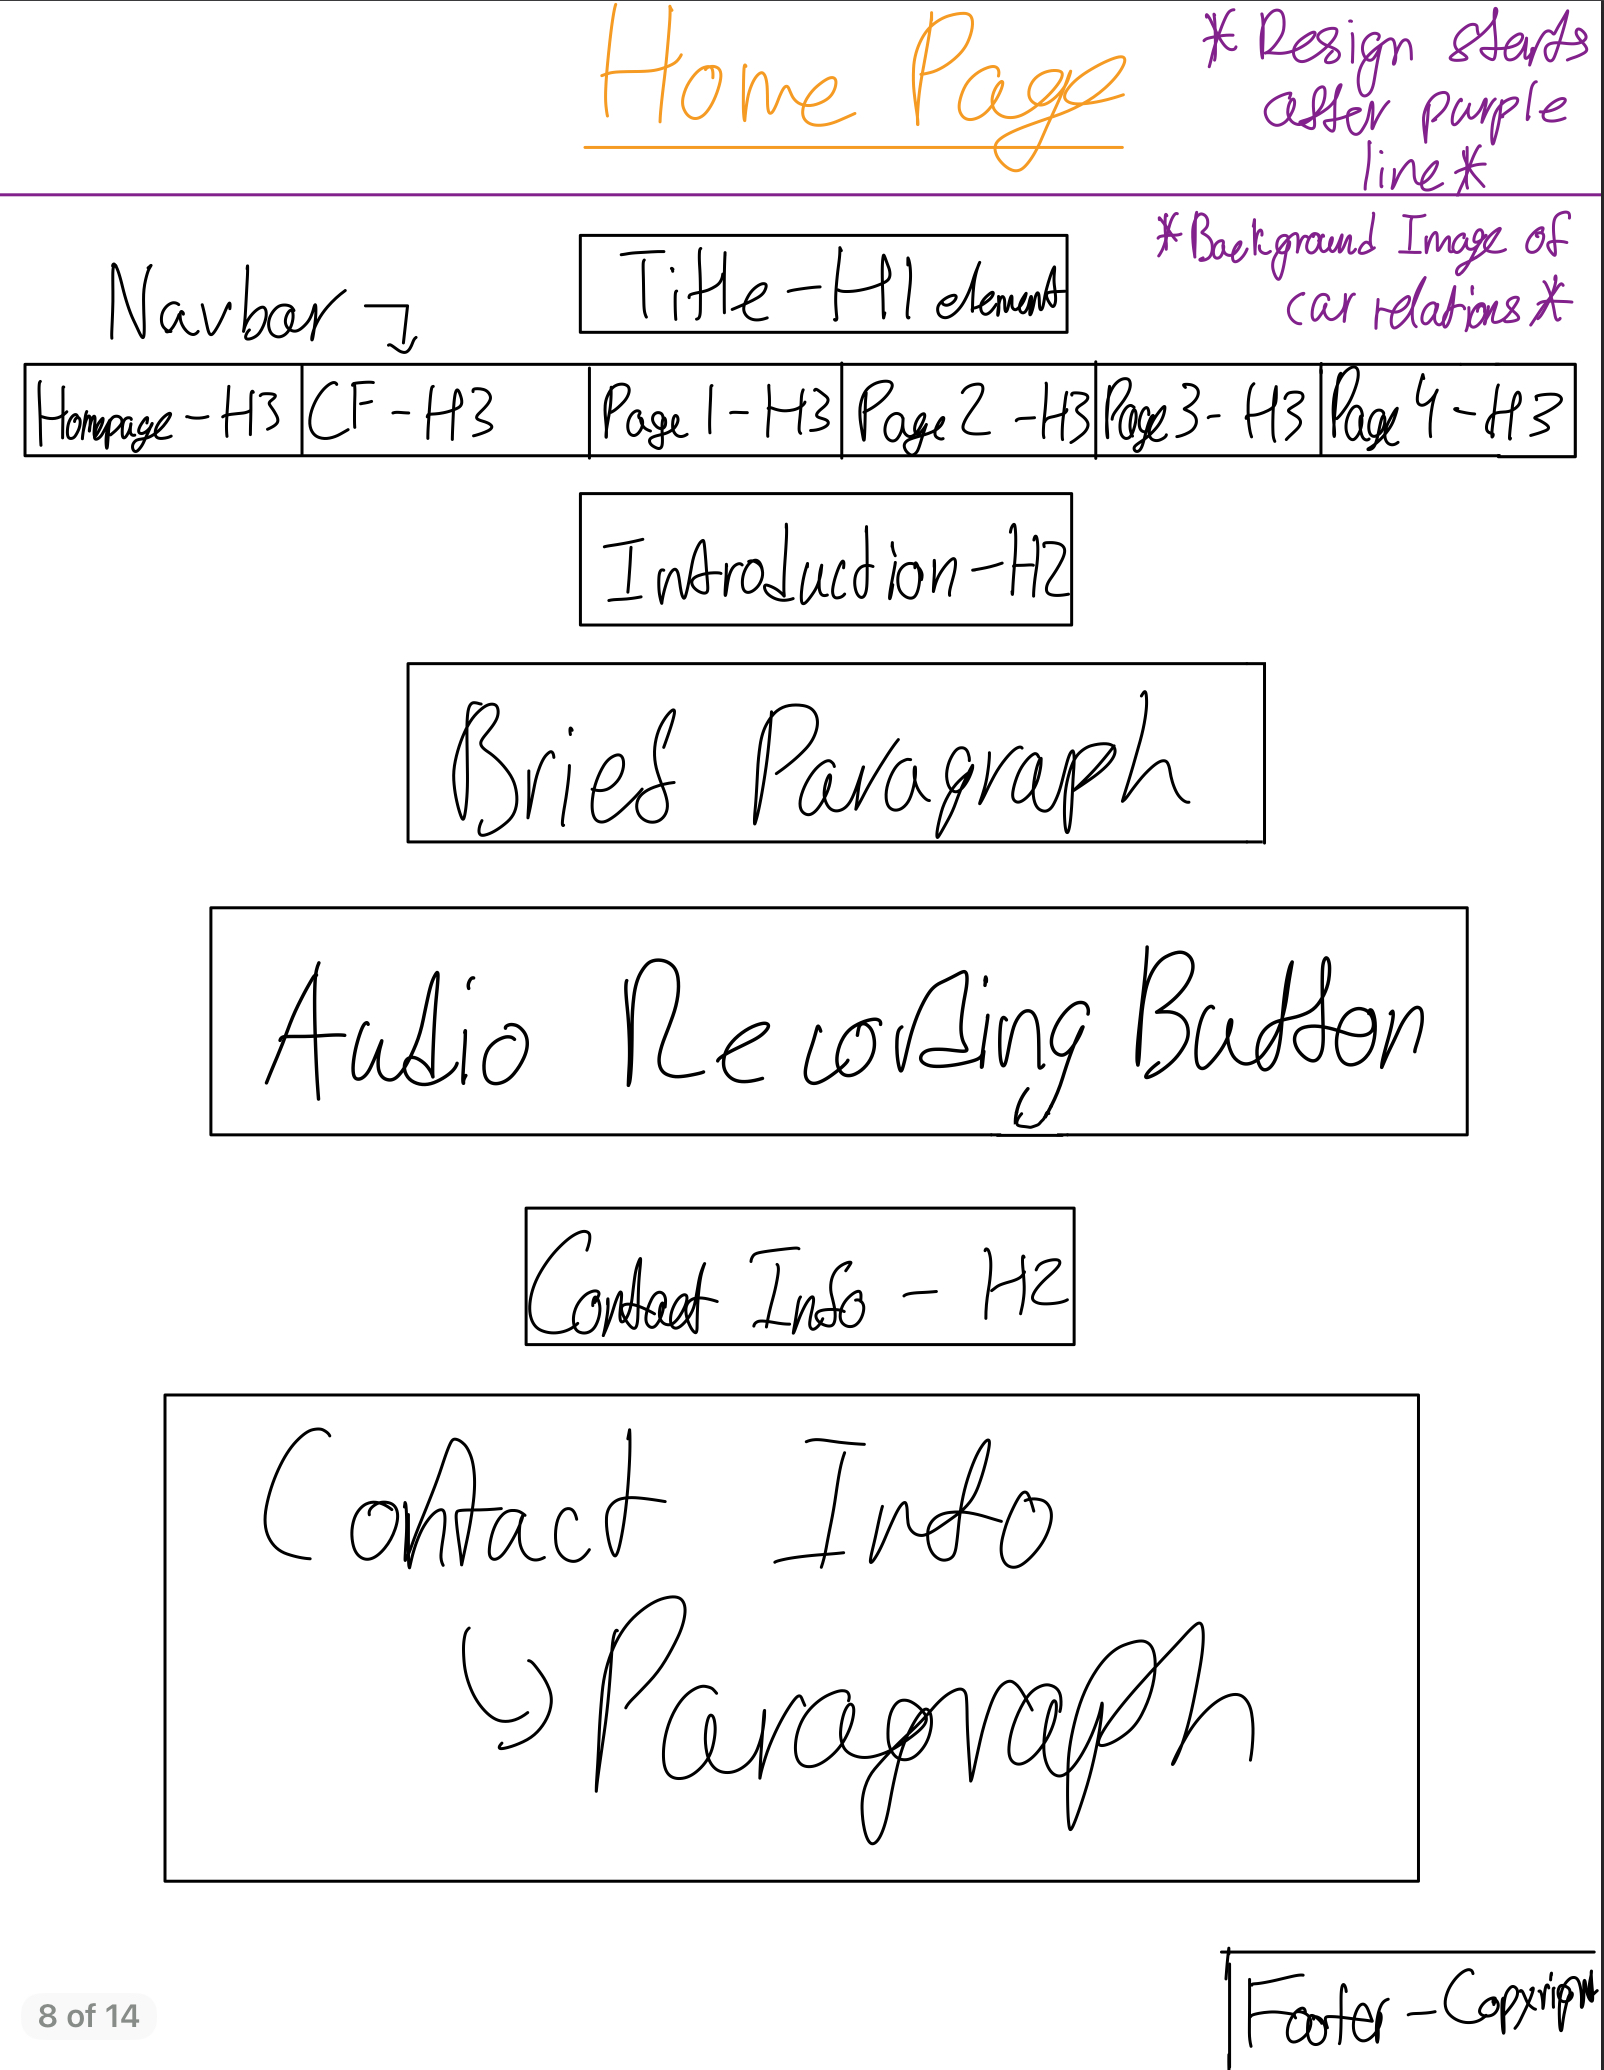 Home Page
* Design starts
after purple
line *
* Background Image of
car relations *
Title - H1 element
Navbar
Homepage - H3 CF - H3 Page 1 - H3 Page 2 - H3 Page 3 - H3 Page 4 - H3
Introduction - H2
Brief Paragraph
Audio Recording Button
Contact Info - H2
Contact Info
Paragraph
8 of 14
Footer -